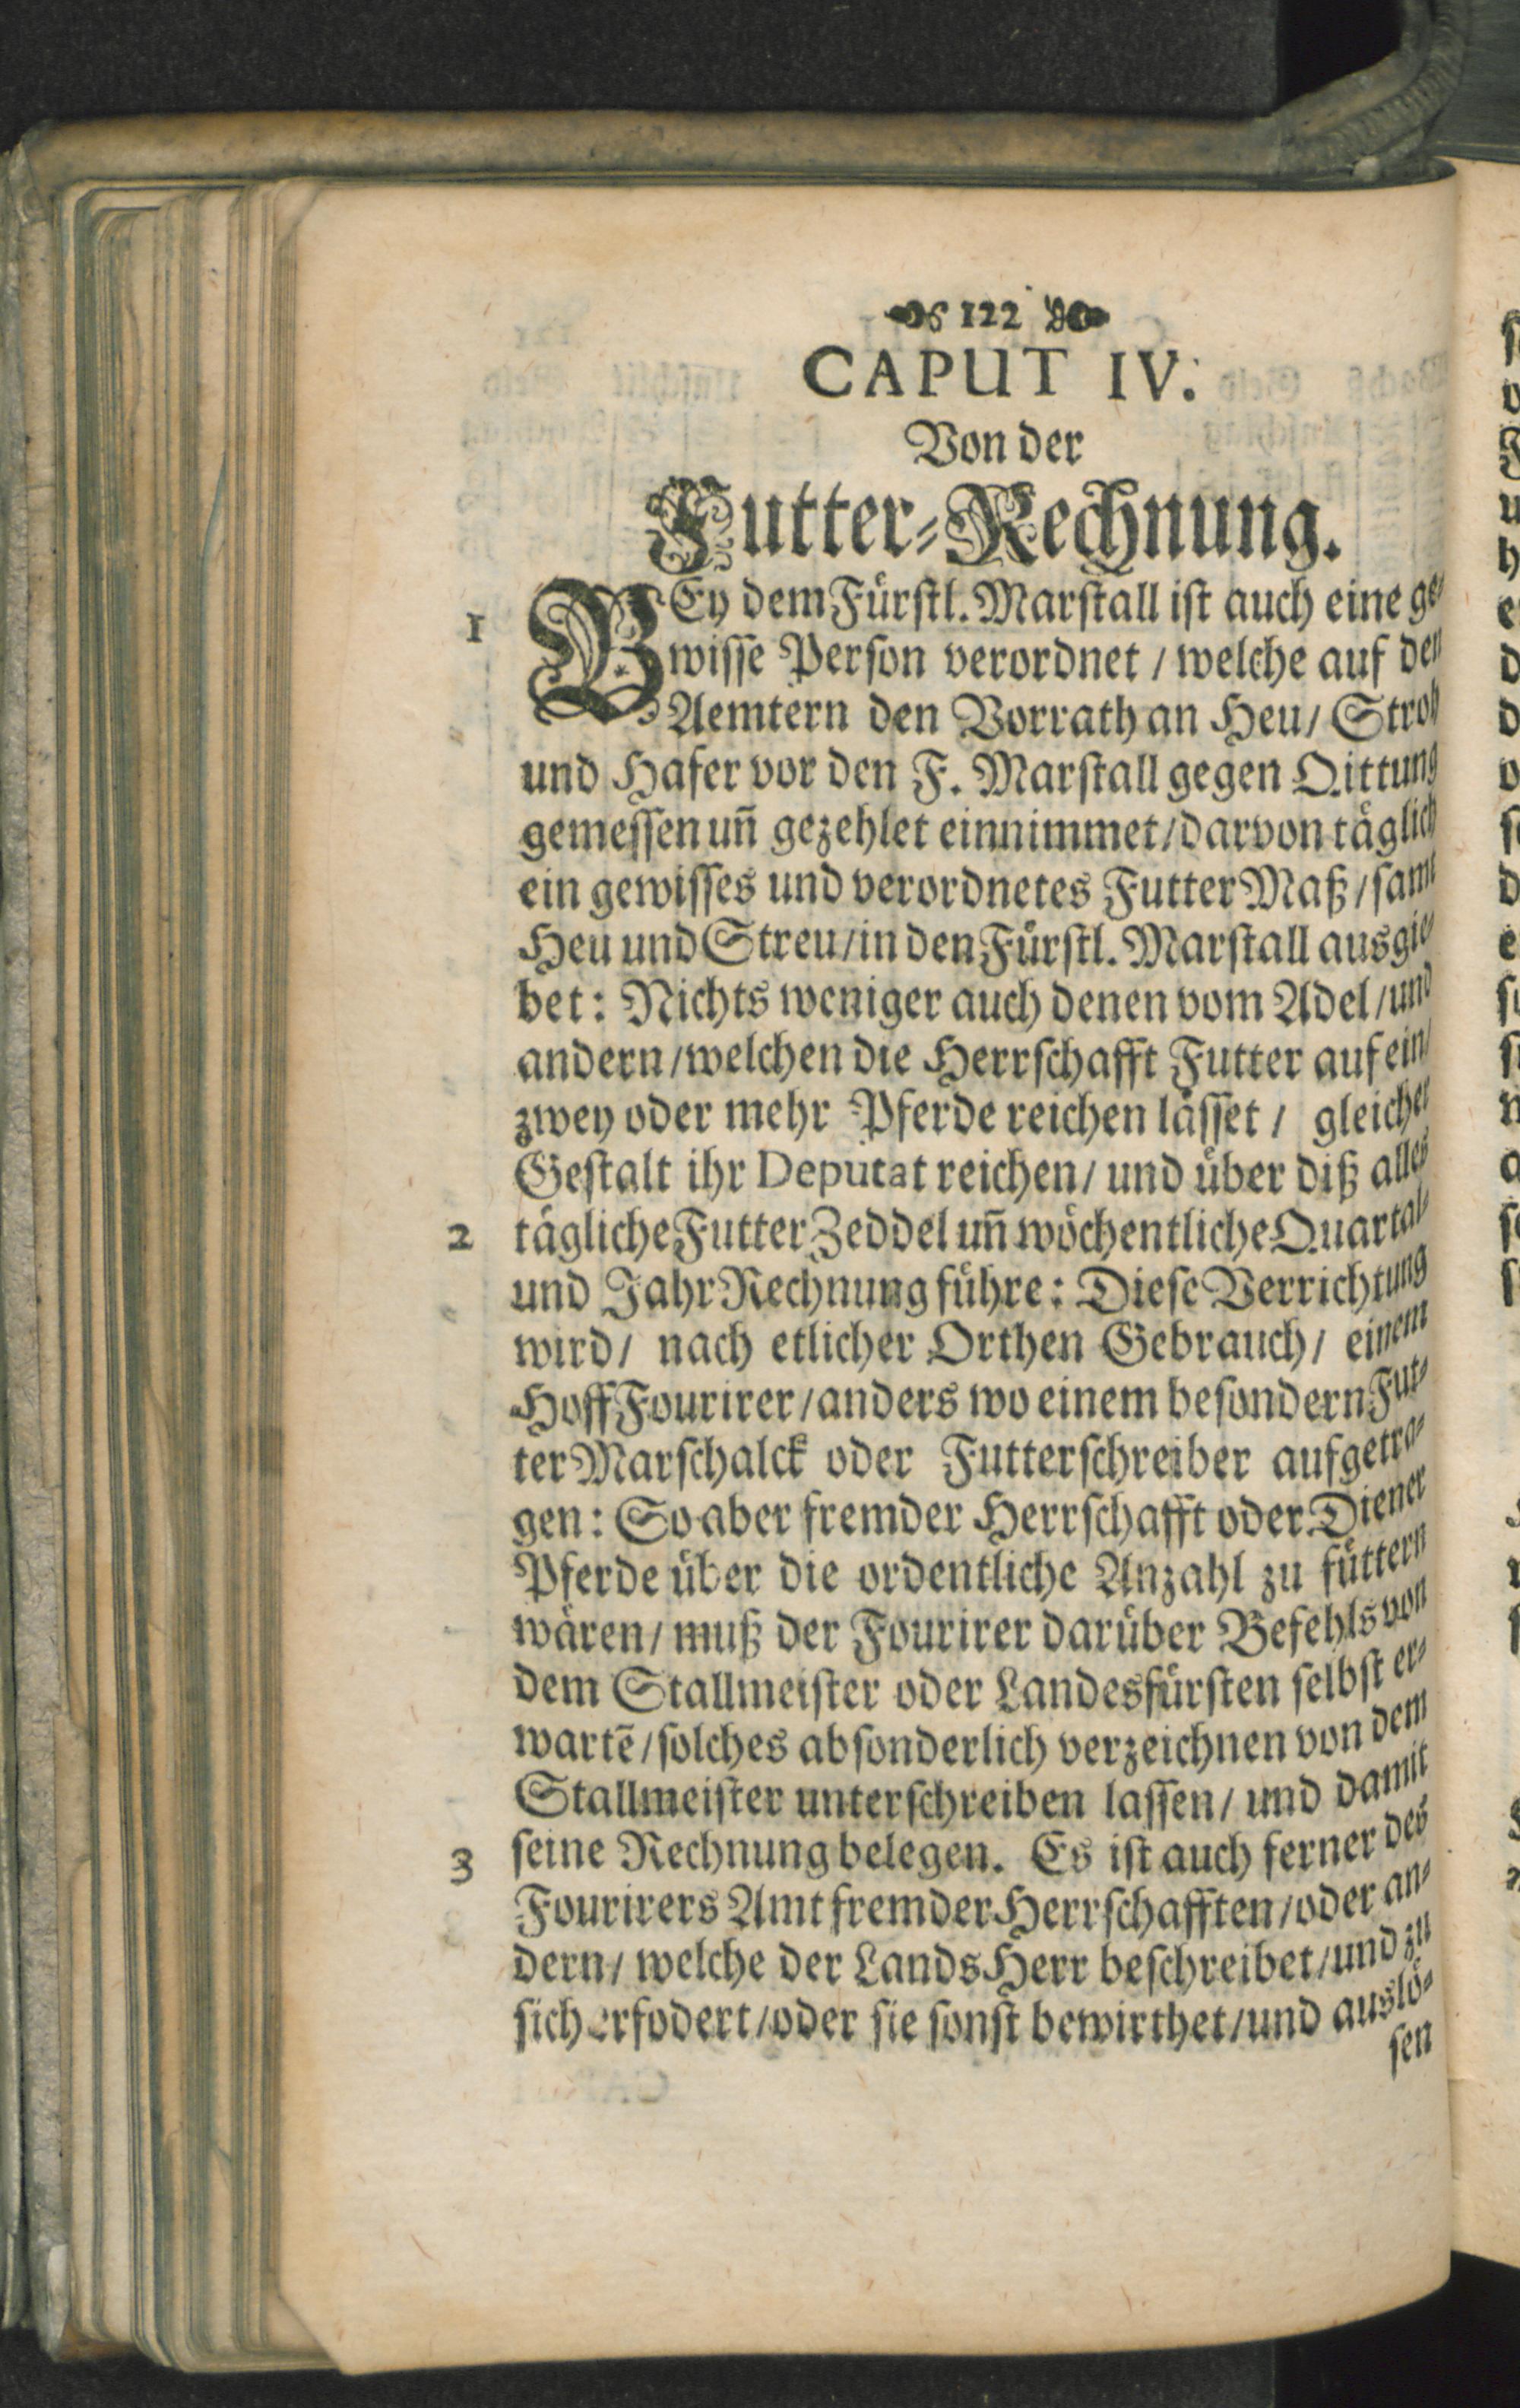 122
CAPUT IV.
Von der
Futter-Rechnung.
1 BEy dem Fürstl. Marstall ist auch eine ge-
wisse Person verordnet / welche auf den
Aemtern den Vorrath an Heu / Stroh
und Hafer vor den F. Marstall gegen Qittung
gemessen uñ gezehlet einnimmet / darvon täglich
ein gewisses und verordnetes Futter Maß / samt
Heu und Streu / in den Fürstl. Marstall ausgie-
bet: Nichts weniger auch denen vom Adel / und
andern / welchen die Herrschafft Futter auf ein /
zwey oder mehr Pferde reichen lässet / gleicher
Gestalt ihr Deputat reichen / und über diß alles
2 tägliche Futter Zeddel uñ wöchentliche Quartal-
und Jahr Rechnung führe: Diese Verrichtung
wird / nach etlicher Orthen Gebrauch / einem
Hoff Fourirer / anders wo einem besondern Fut-
ter Marschalck oder Futterschreiber aufgetra-
gen: So aber fremder Herrschafft oder Diener
Pferde über die ordentliche Anzahl zu füttern
wären / muß der Fourirer darüber Befehls von
dem Stallmeister oder Landesfürsten selbst er-
wartē / solches absonderlich verzeichnen von dem
Stallmeister unterschreiben lassen / und damit
3 seine Rechnung belegen. Es ist auch ferner des
Fourirers Amt fremder Herrschafften / oder an-
dern / welche der Lands Herr beschreibet / und zu
sich erfodert / oder sie sonst bewirthet / und auslö-
sen